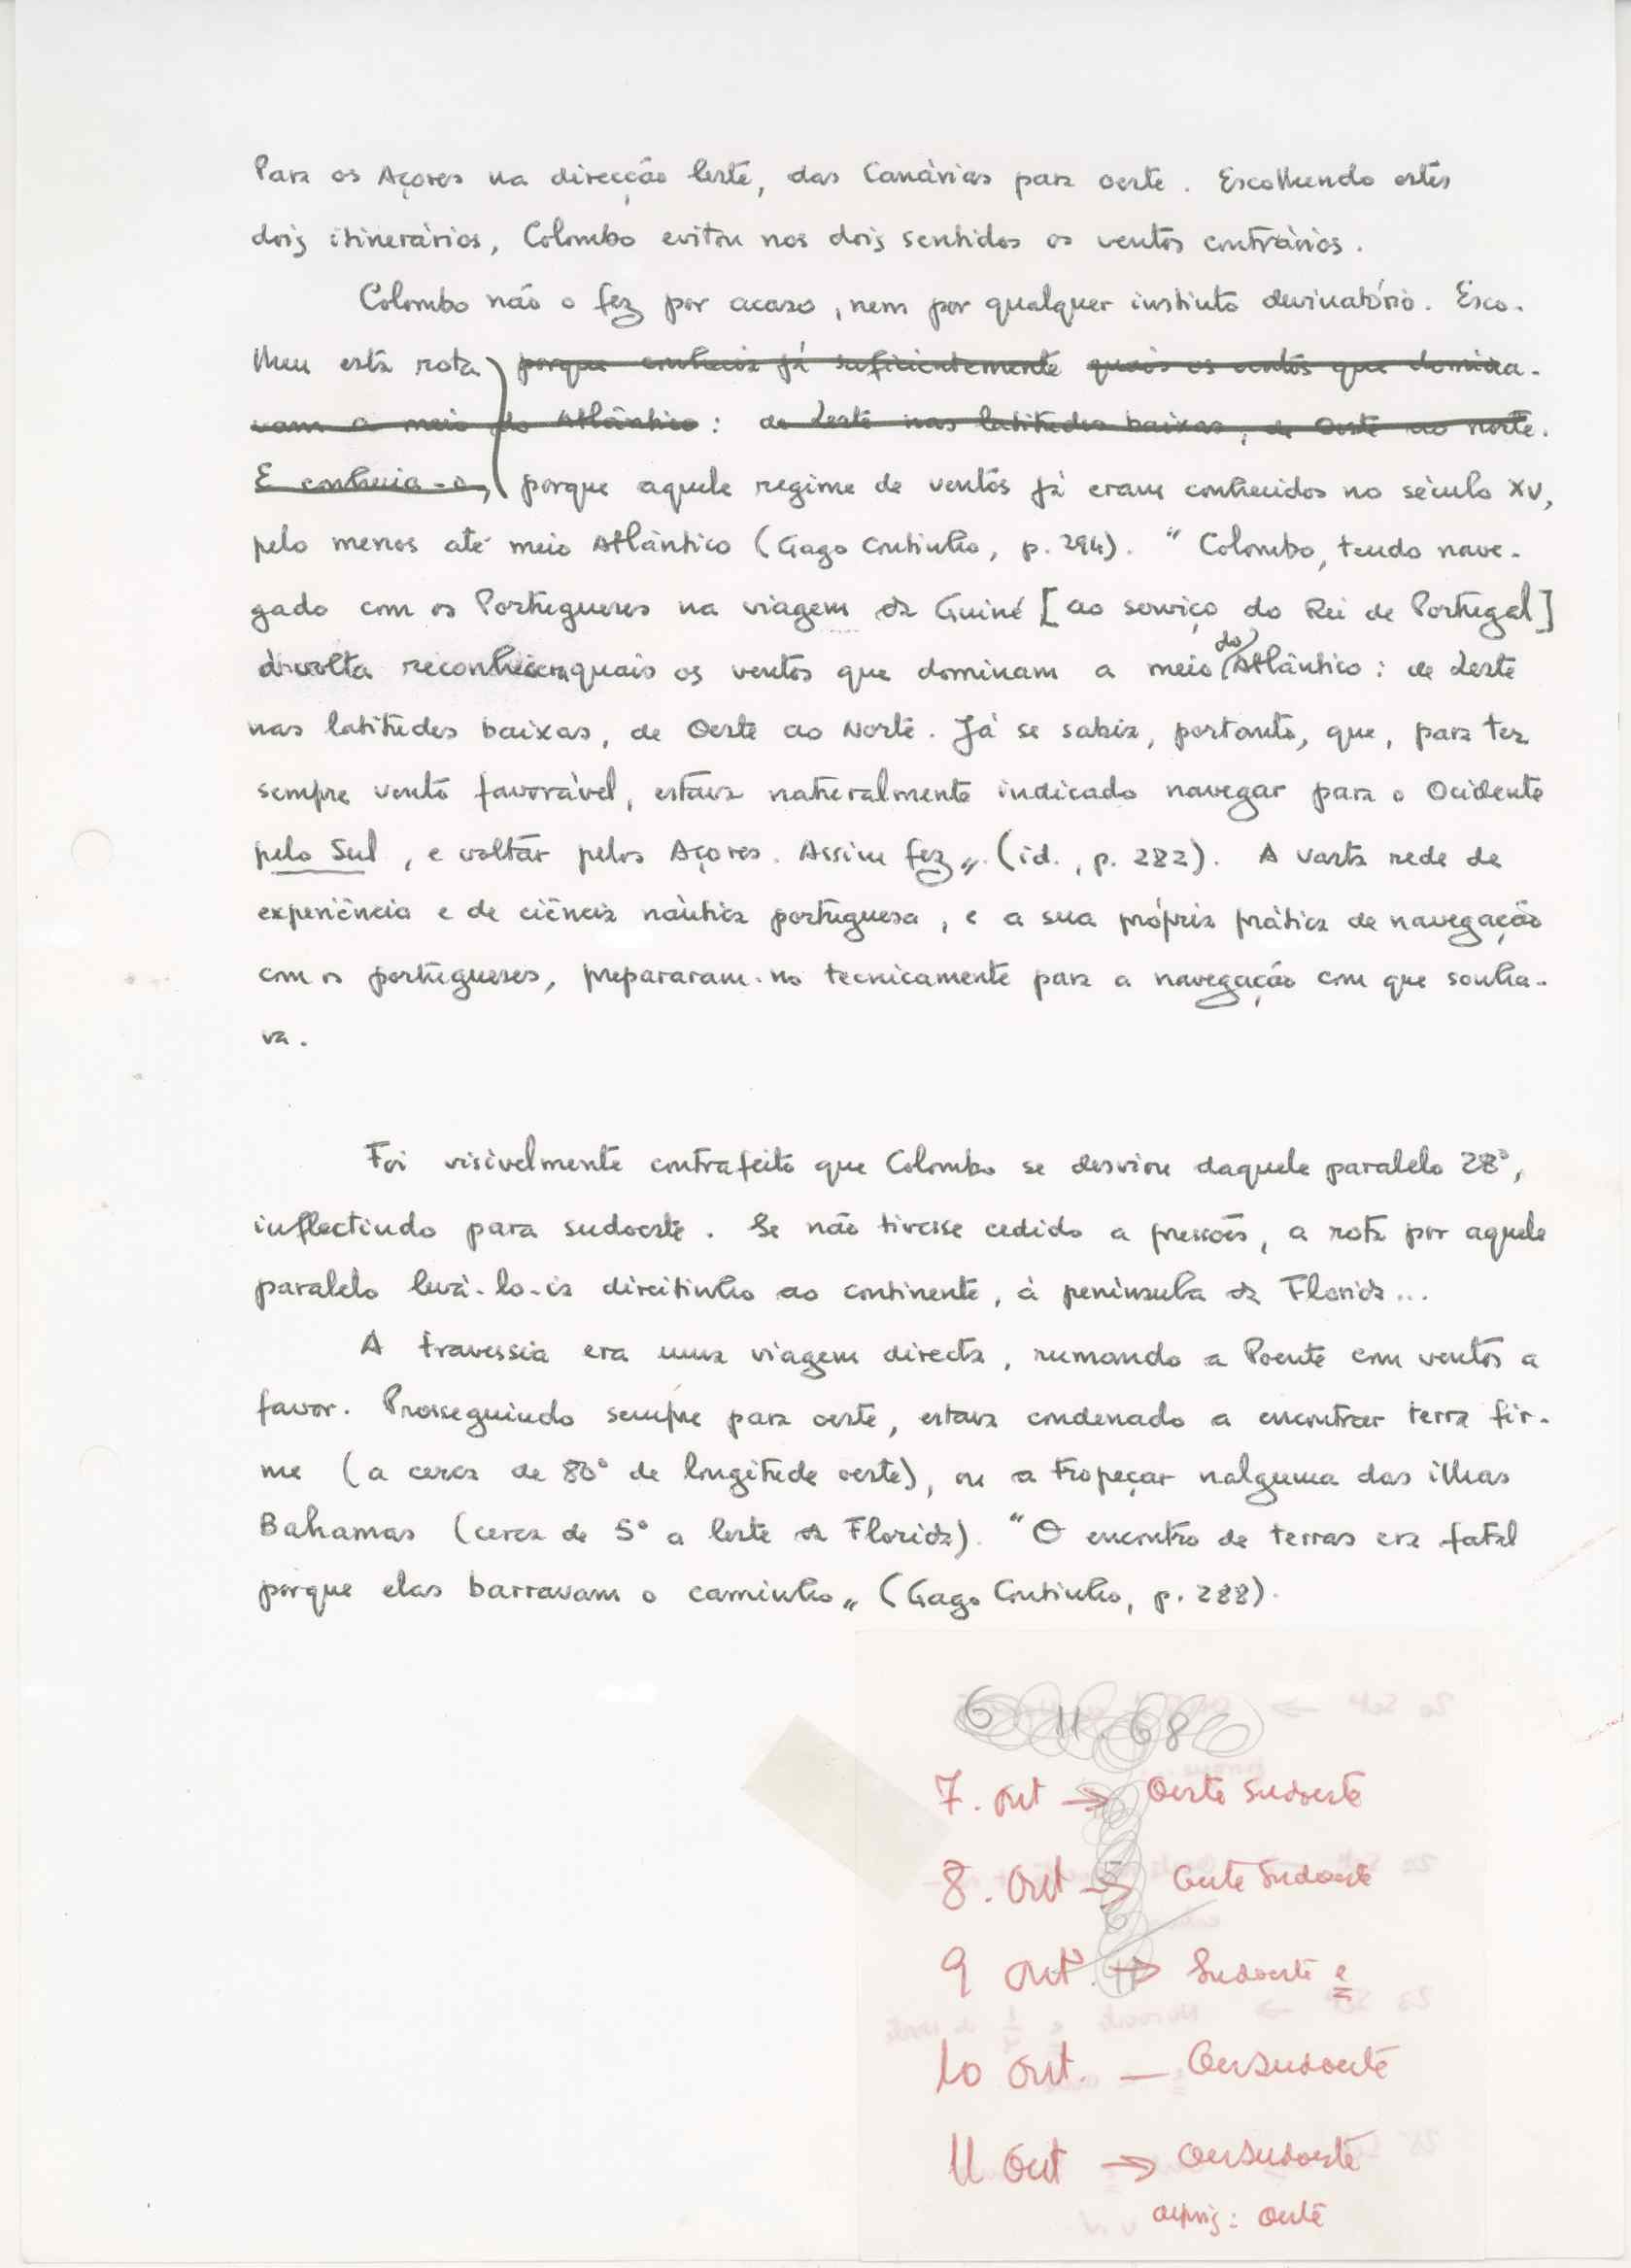 Para os Açores na direcção leste, das Canárias para oeste. Escolhendo estes
dois itinerários, Colombo evitou nos dois sentidos os ventos contrários.
Colombo não o fez por acaso, nem por qualquer instinto devinatório. Esco-
lheu esta rota porque conhecia já suficientemente quais os ventos que domina-
vam a meio do Atlântico: de Leste nas latitudes baixas, de Oeste ao norte.
E conhecia-o, porque aquele regime de ventos já eram conhecidos no século XV,
pelo menos até meio Atlântico (Gago Coutinho, p. 294). "Colombo, tendo nave-
gado com os Portugueses na viagem da Guiné [ao serviço do Rei de Portugal]
de volta reconhecera quais os ventos que dominam a meio do Atlântico: de Leste
nas latitudes baixas, de Oeste ao Norte. Já se sabia, portanto, que, para ter
sempre vento favorável, estava naturalmente indicado navegar para o Ocidente
pelo Sul, e voltar pelos Açores. Assim fez". (id., p. 282). A vasta rede de
experiência e de ciência náutica portuguesa, e a sua própria prática de navegação
com os portugueses, prepararam-no tecnicamente para a navegação com que sonha-
va.
Foi visivelmente contrafeito que Colombo se desviou daquele paralelo 28°,
inflectindo para sudoeste. Se não tivesse cedido a pressões, a rota por aquele
paralelo levá-lo-ia direitinho ao continente, à península da Florida...
A travessia era uma viagem directa, rumando a Poente com ventos a
favor. Prosseguindo sempre para oeste, estava condenado a encontrar terra fir-
me (a cerca de 80° de longitude oeste), ou a tropeçar nalguma das ilhas
Bahamas (cerca de 5° a leste da Florida). "O encontro de terras era fatal
porque elas barravam o caminho" (Gago Coutinho, p. 288).
6 11 68
7. Out → Oeste Sudoeste
8. Out → Oeste Sudoeste
9 Out. → Sudoeste e
10 Out. — Oessudoeste
11 Out → Oessudoeste
depois: Oeste